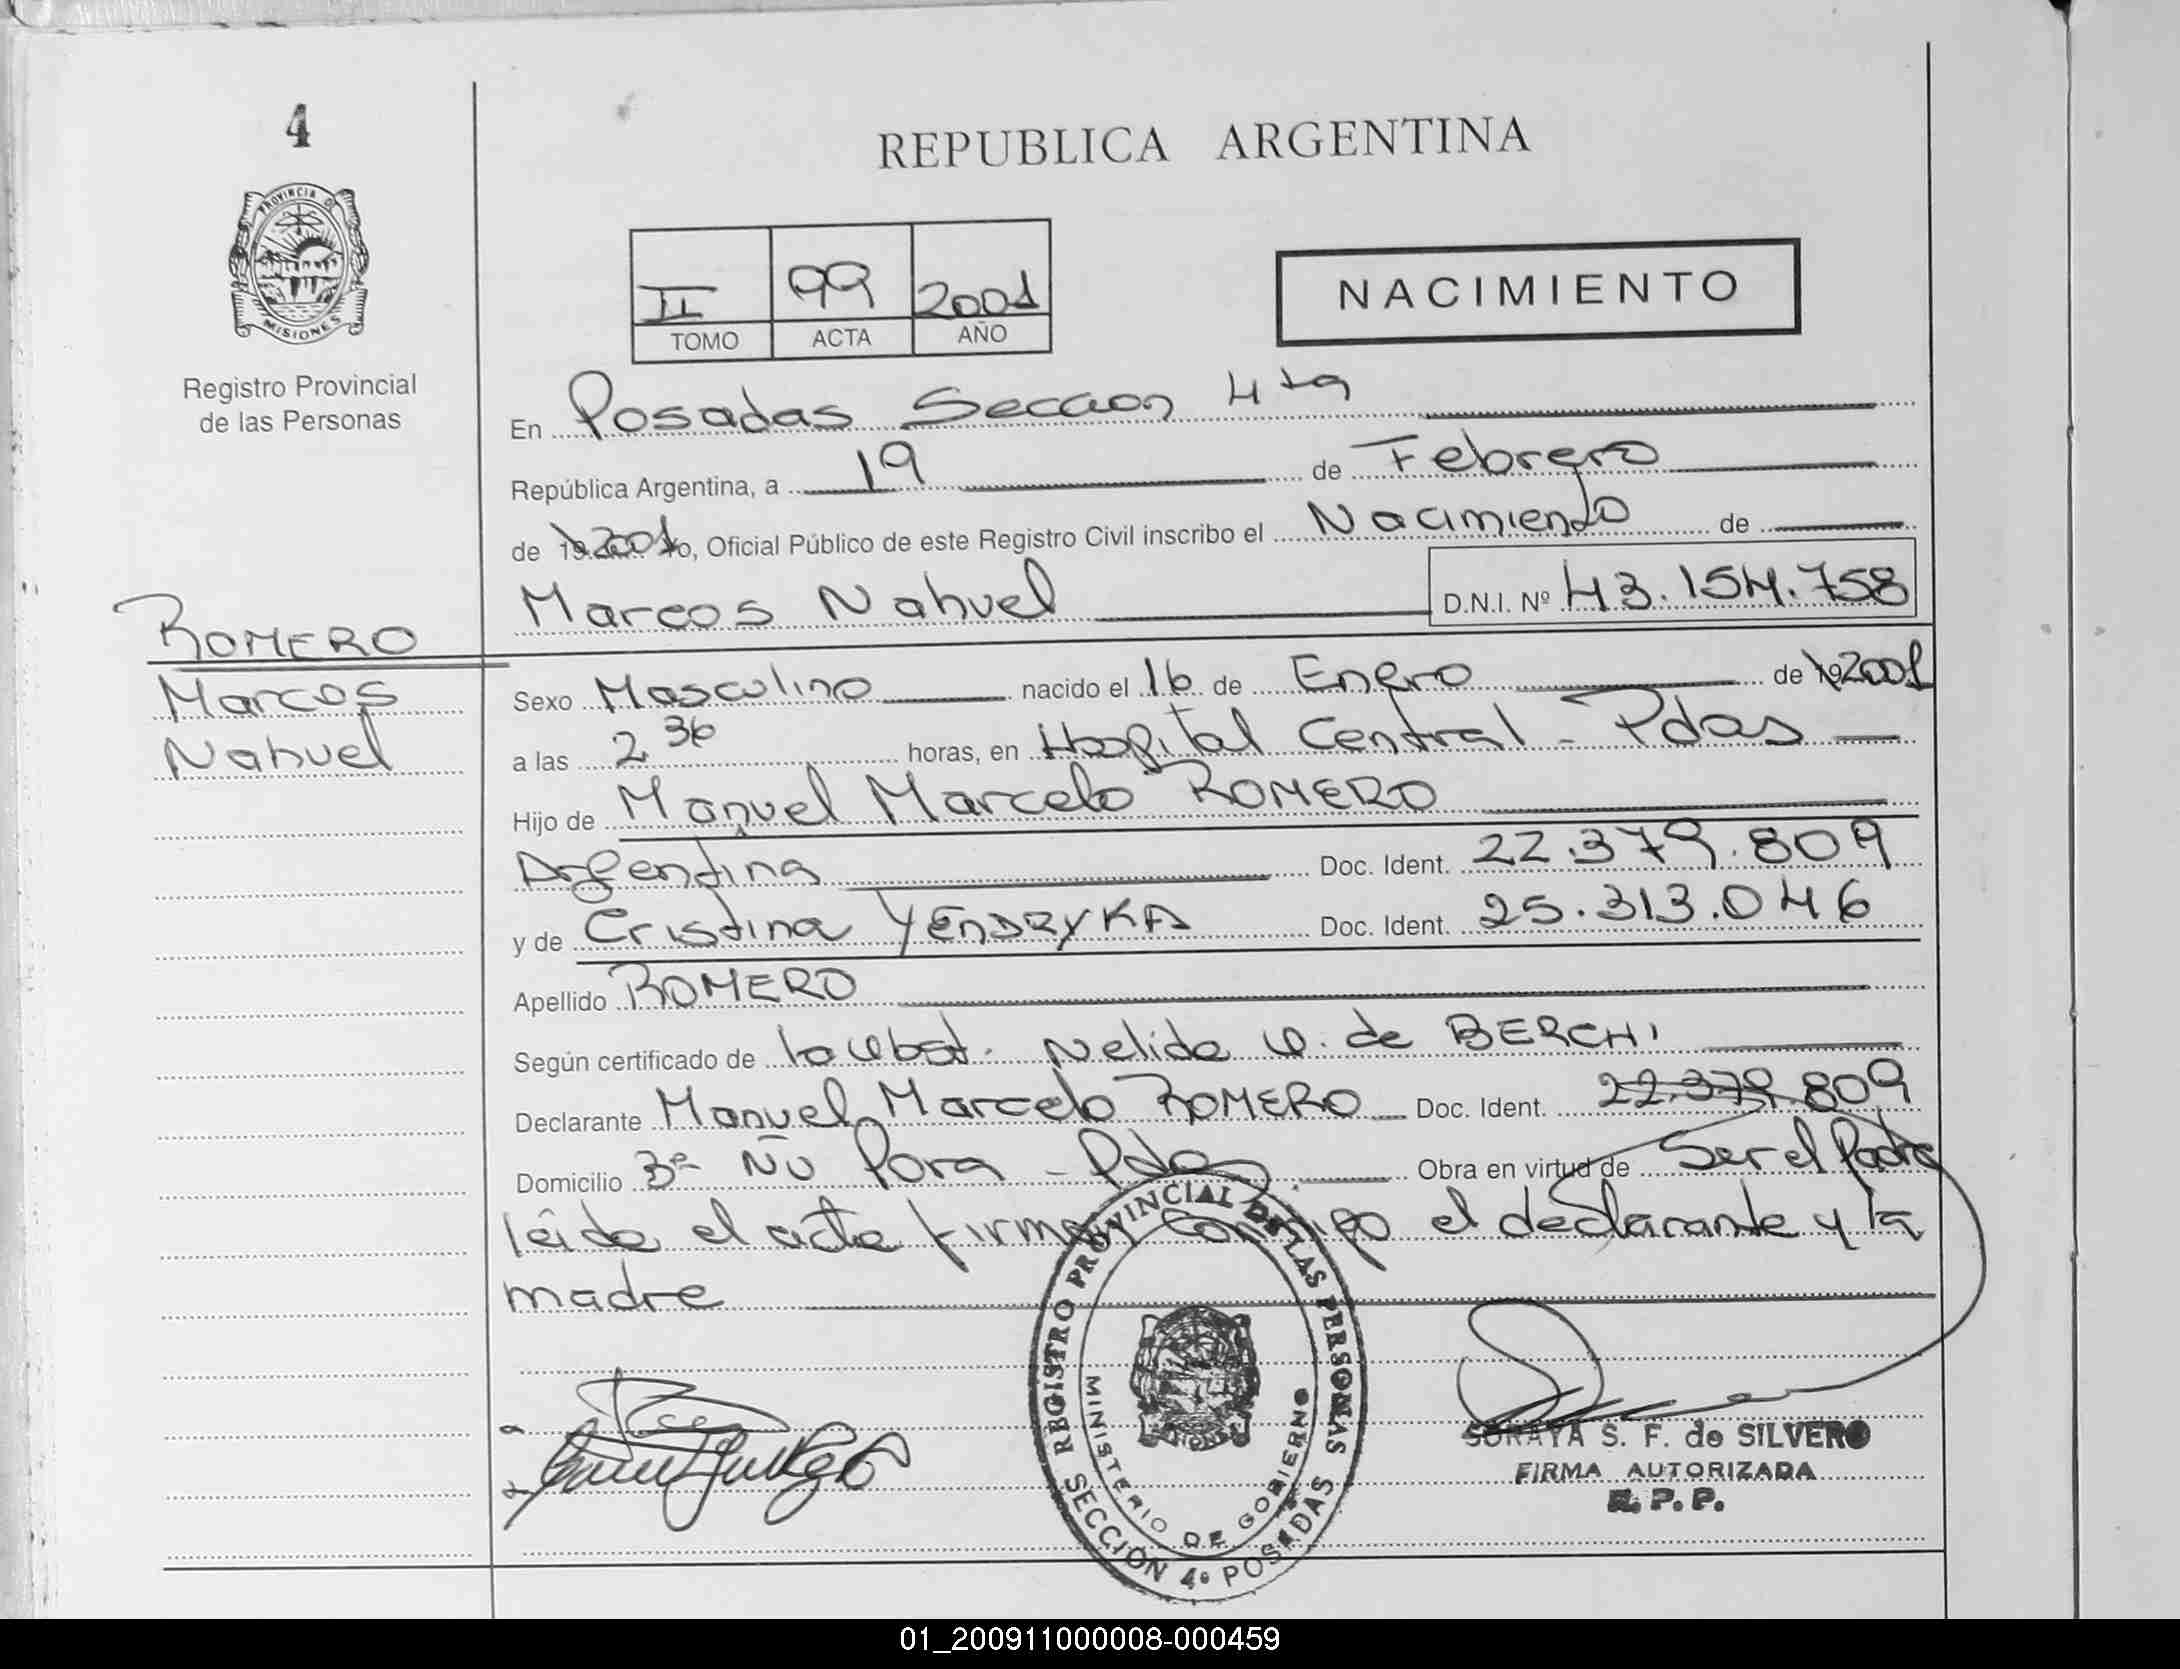 4
PROVINCIA DE
MISIONES
Registro Provincial
de las Personas
REPUBLICA ARGENTINA
II 99 2001
TOMO ACTA AÑO
NACIMIENTO
En Posadas Seccion 4ta
República Argentina, a 19 de Febrero
de 19 2001 Yo, Oficial Público de este Registro Civil inscribo el Nacimiento de
Marcos Nahuel D.N.I. Nº 43.154.758
ROMERO
Marcos
Nahuel
Sexo Masculino nacido el 16 de Enero de 19 2001
a las 2.36 horas, en Hospital Central - Pdas
Hijo de Manuel Marcelo ROMERO
Argentina Doc. Ident. 22.379.809
y de Cristina YENDRYKA Doc. Ident. 25.313.046
Apellido ROMERO
Según certificado de la Obst. Nelida de BERCHI
Declarante Manuel Marcelo ROMERO Doc. Ident. 22.379.809
Domicilio Bº Ñu Pora - Pdas Obra en virtud de Ser el Padre
leida el acta firman conmigo el declarante y la
madre
REGISTRO PROVINCIAL DE LAS PERSONAS
MINISTERIO DE GOBIERNO
SECCION 4º POSADAS
MISIONES
SORAYA S. F. de SILVERO
FIRMA AUTORIZADA
R. P. P.
01_200911000008-000459